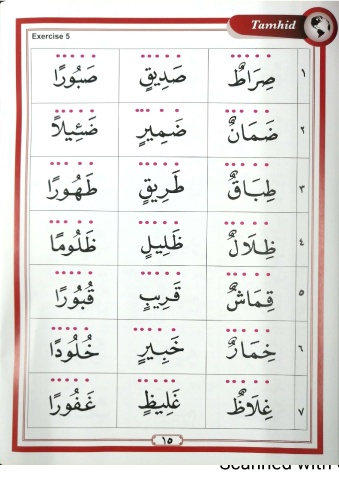 Tamhid
Exercise 5
١ صِرَاطٌ صَدِيقٍ صَبُورًا
٢ ضَمَانٌ ضَمِيرٍ ضَئِيلاً
٣ طِبَاقٌ طَرِيقٍ طَهُورًا
٤ ظِلَالٌ ظَلِيلٍ ظَلُومًا
٥ قِمَاشٌ قَرِيبٍ قُبُورًا
٦ خِمَارٌ خَبِيرٍ خُلُودًا
٧ غِلَاظٌ غَلِيظٍ غَفُورًا
١٥
Scanned with